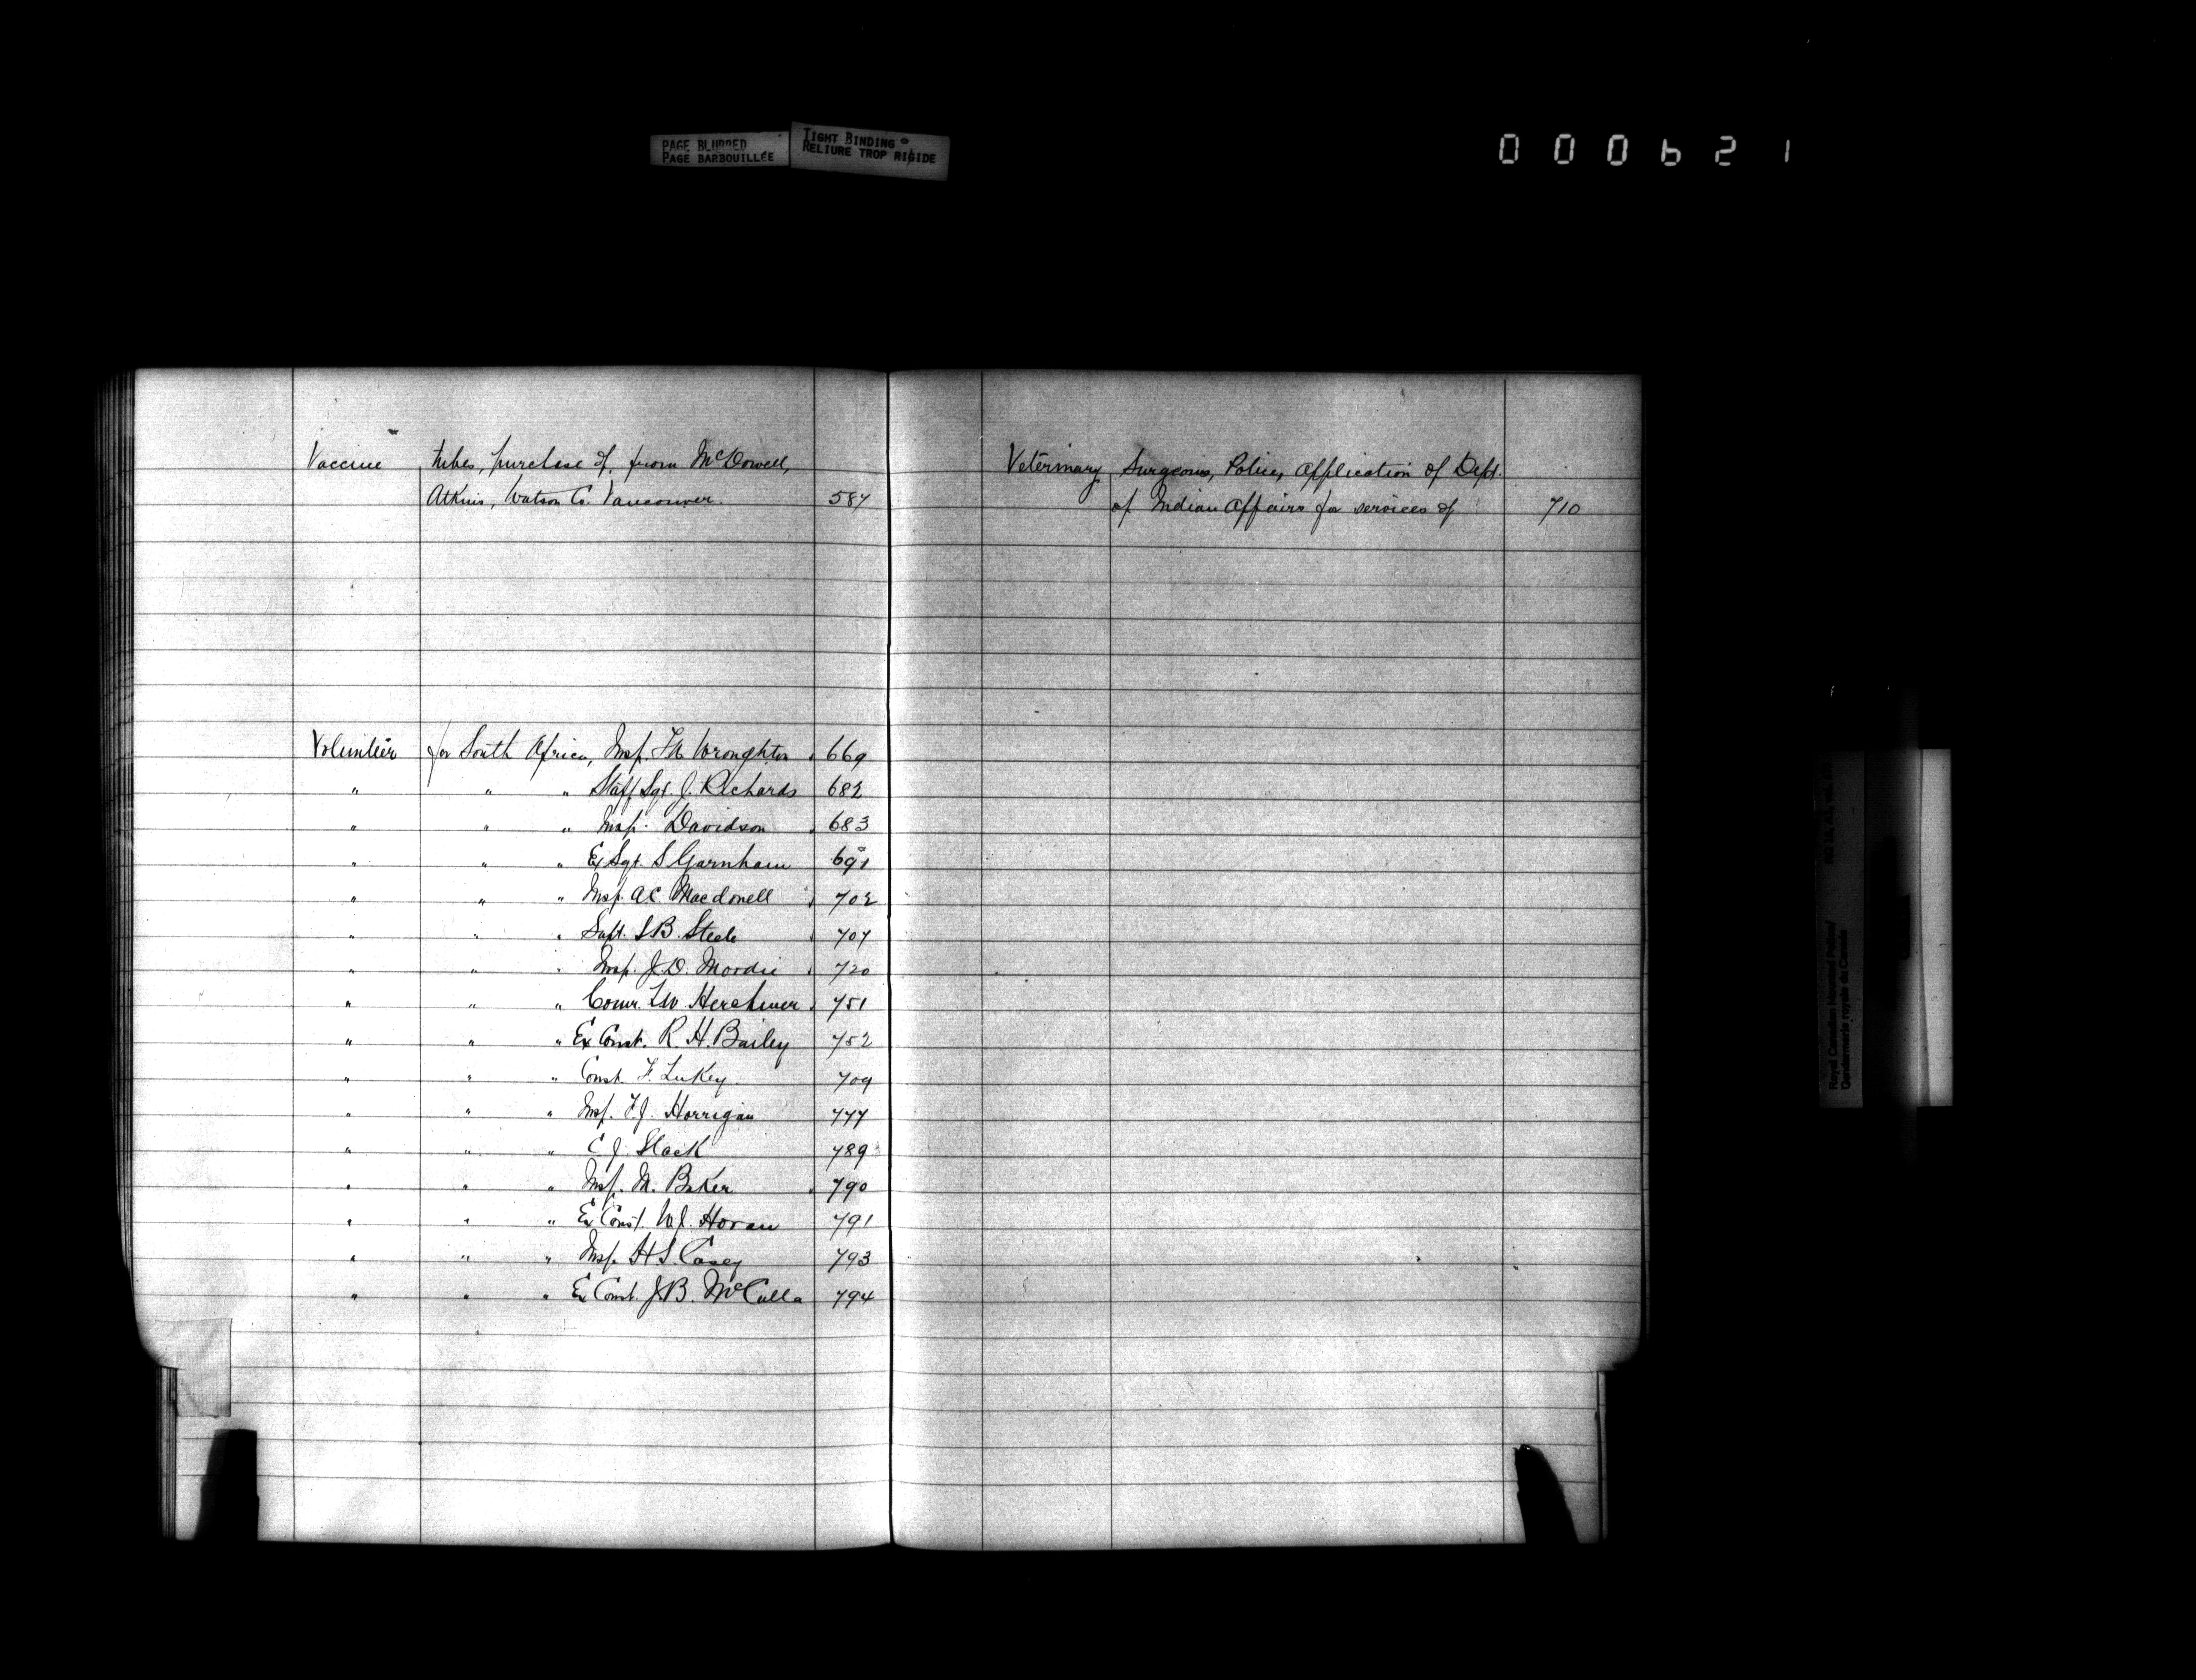 PAGE BLURRED
PAGE BARBOUILLÉE
TIGHT BINDING
RELIURE TROP RIGIDE
000621
Vaccine tubes, purchase of, from McDowell,
Atkins, Watson Co. Vancouver. 587
Volunteer for South Africa, Insp. T.A. Wroughton 669
" " " Staff Sgt. J. Richards 682
" " " Insp. Davidson 683
" " " Ex Sgt. S Garnham 691
" " " Insp. A.C. Macdonell 702
" " " Supt. S.B. Steele 707
" " " Insp. J.D. Moodie 720
" " " Comr. L.W. Herchmer 751
" " " Ex Const. R. H. Bailey 752
" " " Const. F. Lukey 709
" " " Insp. F.J. Horrigan 777
" " " C. J. Slack 789
" " " Insp. M. Baker 790
" " " Ex Const. W.J. Horan 791
" " " Insp. H S. Casey 793
" " " Ex Const. J.B. McCulla 794
Veterinary Surgeons, Police, Application of Dept.
of Indian Affairs for services of 710
Royal Canadian Mounted Police/
Gendarmerie royale du Canada